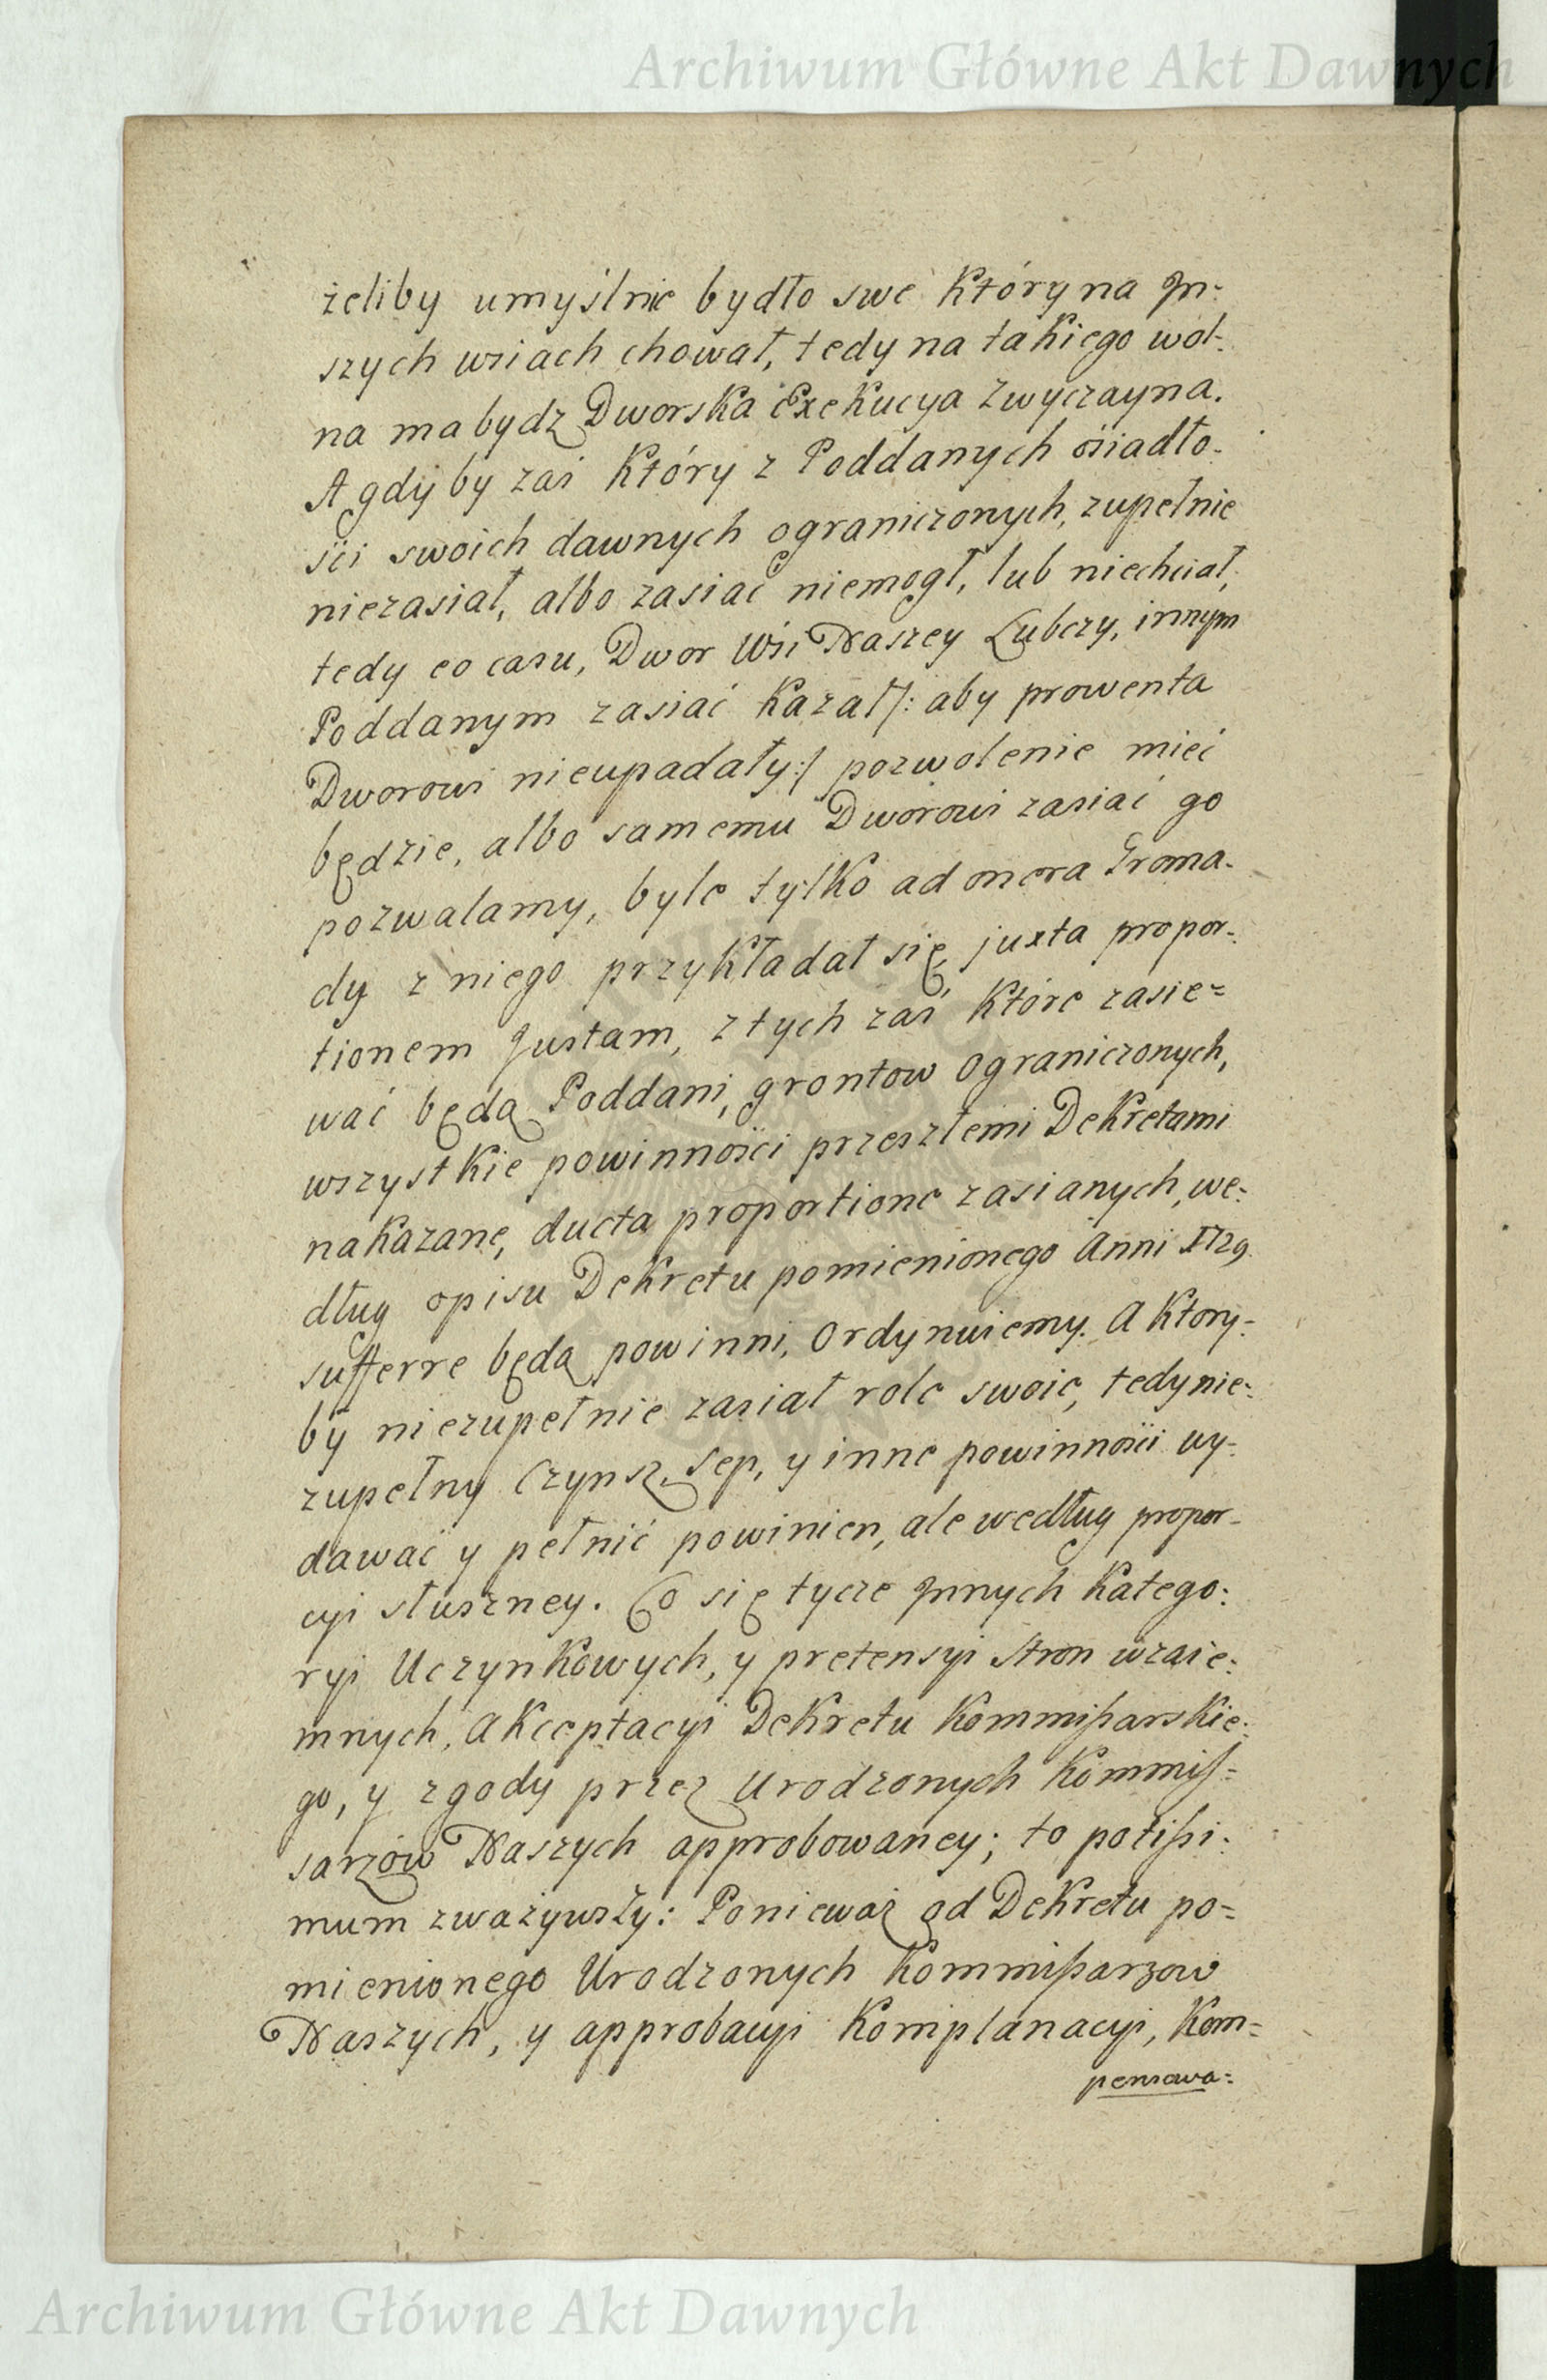 Archiwum Główne Akt Dawnych
żeliby umyślnie bydło swe który na Jn:
szych wsiach chował, tedy na takiego wol:
na ma bydz Dworska Exekucya zwyczayna.
A gdyby zaś który z Poddanych ośiadło:
ści swoich dawnych ograniczonych, zupełnie
niezasiał, albo zasiać niemogł, lub niechciał,
tedy eo casu, Dwor Wśi Naszey Lubczy, innym
Poddanym zasiać kazał /: aby prowenta
Dworowi nieupadały :/ pozwolenie mieć
będzie, albo samemu Dworowi zasiać go
pozwalamy, byle tylko ad onera Groma:
dy z niego przykładał się, juxta propor:
tionem Justam, z tych zaś które zasie=
wać będą Poddani, grontow ograniczonych,
wszystkie powinności przeszłemi Dekretami
nakazane, ducta proportione zasianych, we:
dług opisu Dekretu pomienionego Anni 1729.
sufferre będą powinni, Ordynuiemy. A ktory:
by niezupełnie zasiał role swoie, tedy nie:
zupełny Czynsz, Sep, y inne powinności wy:
dawać y pełnić powinien, ale według propor-
cyi słuszney. Co się tycze Jnnych Katego:
ryi Uczynkowych, y pretensyi stron wzaie:
mnych, Akceptacyi Dekretu Kommißarskie:
go, y zgody przez Urodzonych Kommis=
sarzów Naszych approbowaney; to potißi:
mum zważywszy: Ponieważ od Dekretu po=
mienionego Urodzonych Kommißarzow
Naszych, y approbacyi Komplanacyi, Kom=
pensowa:
Archiwum Główne Akt Dawnych